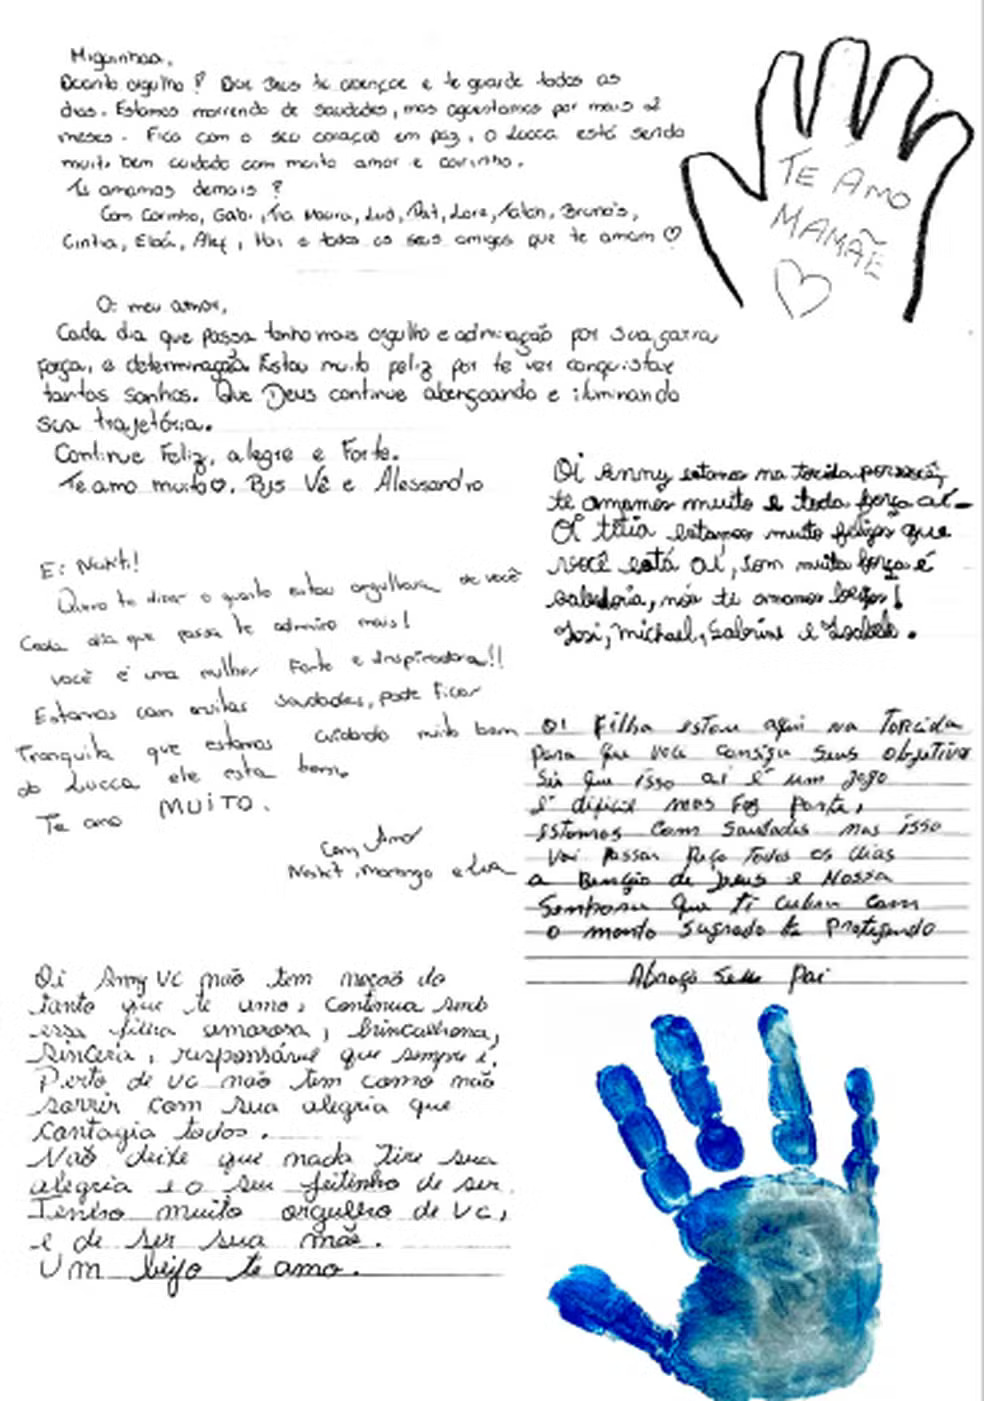 Miguinhaa,
Quanto orgulho! Que Deus te abençoe e te guarde todos os
dias. Estamos morrendo de saudades, mas aguentamos por mais 2
meses. Fica com o seu coração em paz, o Lucca está sendo
muito bem cuidado com muito amor e carinho.
Te amamos demais!
Com Carinho, Gabi, Tia Maura,
Cintia, e todos os seus amigos que te amam ♡
TE AMO
MAMÃE
Oi meu amor,
Cada dia que passa tenho mais orgulho e admiração por sua garra
força, e determinação. Estou muito feliz por te ver conquistar
tantos sonhos. Que Deus continue abençoando e iluminando
sua trajetória.
Continue Feliz, alegre e Forte.
Te amo muito♡. Bjs Vê e Alessandro
Oi Anny estamos na torcida por você,
te amamos muito e toda força aí.
Oi titia estamos muito felizes que
você está aí, com muita força é
sabedoria, nós ti amamos beijos!
Josi, Michael, Sabrine e Isabele.
Ei Nakit!
Quero te dizer o quanto estou orgulhosa de você
Cada dia que passa te admiro mais!
você é uma mulher Forte e Inspiradora!!
Estamos com muitas saudades, pode ficar
Tranquila que estamos cuidando muito bem
do Lucca ele esta bem.
Te amo MUITO.
Com Amor
Nakit, Morango e Lua
Oi Filha estou aqui na Torcida
para que voce consiga seus objetivo
Sei que isso aí é um jogo
é dificil mas Faz parte,
Estamos Com Saudades mas isso
Vai passar Peço Todos os dias
a Benção de Jesus e Nossa
Senhora Que Ti cubra Com
o manto Sagrado te Protegendo
Abraço Seu Pai
Oi Anny vc não tem noção do
tanto que te amo, continua sendo
essa filha amorosa, brincalhona,
sincera, responsável que sempre é.
Perto de vc não tem como não
sorrir com sua alegria que
contagia todos.
Não deixe que nada tire sua
alegria e o seu jeitinho de ser.
Tenho muito orgulho de vc,
e de ser sua mãe.
Um beijo te amo.